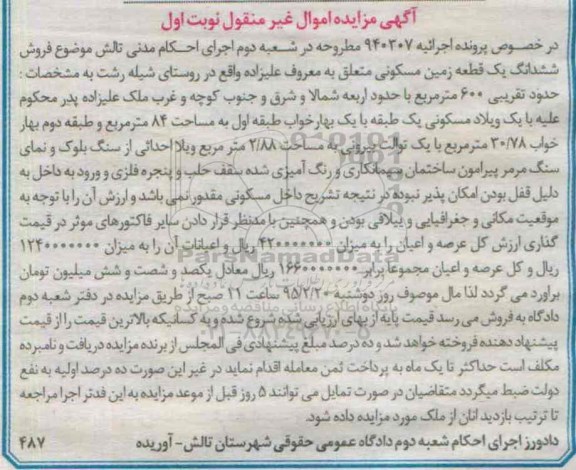 آگهی مزایده اموال غیر منقول نوبت اول
در خصوص پرونده اجرائیه ۹۴۰۳۰۷ مطروحه در شعبه دوم اجرای احکام مدنی تالش موضوع فروش
ششدانگ یک قطعه زمین مسکونی متعلق به معروف علیزاده واقع در روستای شیله رشت به مشخصات :
حدود تقریبی ۶۰۰ مترمربع با حدود اربعه شمالا و شرق و جنوب کوچه و غرب ملک علیزاده پدر محکوم
علیه با یک ویلاد مسکونی یک طبقه با یک بهارخواب طبقه اول به مساحت ۸۴ مترمربع و طبقه دوم بهار
خواب ۳۰/۷۸ مترمربع با یک توالت بیرونی به مساحت ۲/۸۸ متر مربع ویلا احداثی از سنگ بلوک و نمای
سنگ مرمر پیرامون ساختمان سیمانکاری و رنگ آمیزی شده سقف حلب و پنجره فلزی و ورود به داخل به
دلیل قفل بودن امکان پذیر نبوده در نتیجه تشریح داخل مسکونی مقدور نمی باشد و ارزش آن را با توجه به
موقعیت مکانی و جغرافیایی و ییلاقی بودن و همچنین با مدنظر قرار دادن سایر فاکتورهای موثر در قیمت
گذاری ارزش کل عرصه و اعیان را به میزان ۴۲۰۰۰۰۰۰۰ ریال و اعیانات آن را به میزان ۱۲۴۰۰۰۰۰۰۰
ریال و کل عرصه و اعیان مجموعا برابر ۱۶۶۰۰۰۰۰۰۰ ریال معادل یکصد و شصت و شش میلیون تومان
براورد می گردد لذا مال موصوف روز دوشنبه ۹۵/۲/۲۰ ساعت ۱۱ صبح از طریق مزایده در دفتر شعبه دوم
دادگاه به فروش می رسد قیمت پایه از بهای ارزیابی شده شروع شده و به کسانیکه بالاترین قیمت را از قیمت
پیشنهاد دهنده فروخته خواهد شد و ده درصد مبلغ پیشنهادی فی المجلس از برنده مزایده دریافت و نامبرده
مکلف است حداکثر تا یک ماه به پرداخت ثمن معامله اقدام نماید در غیر این صورت ده درصد اولیه به نفع
دولت ضبط میگردد متقاضیان در صورت تمایل می توانند ۵ روز قبل از موعد مزایده به این فدتر اجرا مراجعه
تا ترتیب بازدید انان از ملک مورد مزایده داده شود.
دادورز اجرای احکام شعبه دوم دادگاه عمومی حقوقی شهرستان تالش - آوریده ۴۸۷
ParsNamadData